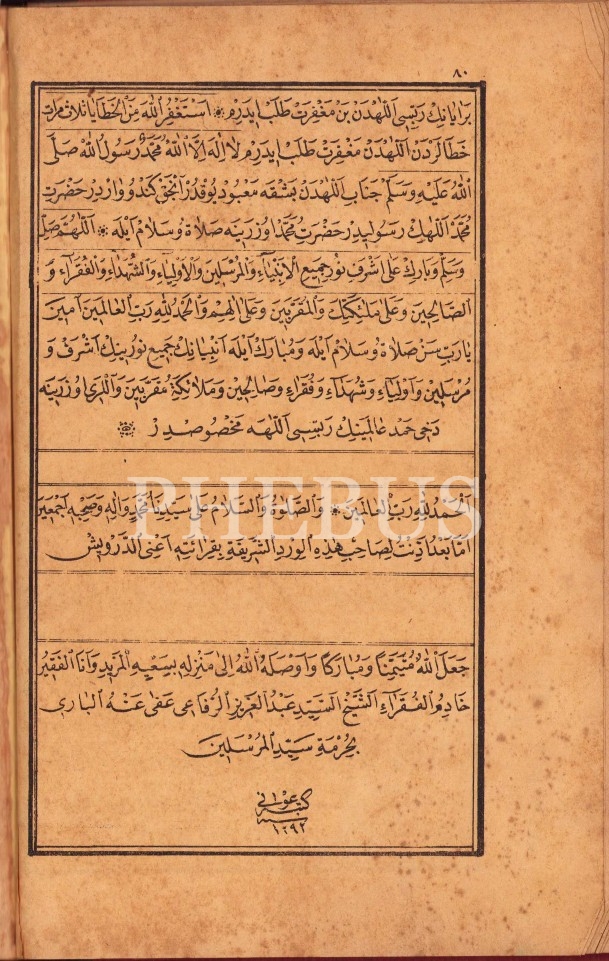 ٨٠
برايانك ربسى اللهدن بن مغفرت طلب ايدرم * استغفر الله من الخطايا ثلاث مرات
خطالردن اللهدن مغفرت طلب ايدرم لا اله الا الله محمد رسول الله صلى
الله عليه وسلم جناب اللهدن بشقه معبود يوقدر انجق كندو واردر حضرت
محمد اللهك رسوليدر حضرت محمد اوزرينه صلاة وسلام ايله * اللهم صل
وسلم وبارك على اشرف نور جميع الانبياء والمرسلين والاولياء والشهداء والفقراء و
الصالحين وعلى ملئكتك والمقربين وعلى الهم والحمد لله رب العالمين امين
يارب سن صلاة وسلام ايله ومبارك ايله انبيانك جميع نورينك اشرف و
مرسلين واولياء وشهداء وفقراء وصالحين وملائكه مقربين واللرى اوزرينه
دخى حمد عالمينك ربسى اللهه مخصوصدر *
الحمد لله رب العالمين * والصلوة والسلام على سيدنا محمد واله وصحبه اجمعين
اما بعد اذنت لصاحب هذه الورد الشريفة بقرائته اعنى الدرويش
PHEBUS
جعل الله متيمنا ومباركا واوصله الله الى منزله بسعيه المزيد وانا الفقير
خادم الفقراء الشيخ السيد عبد العزيز الرفاعى عفى عنه البارى
بحرمة سيد المرسلين
كتبه عونى
سنه
١٢٩٢